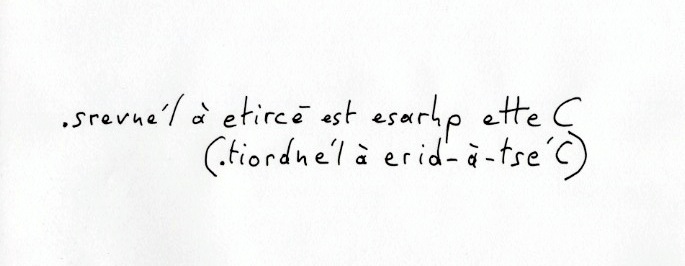 .srevne'l à etircé est esarhp etteC
(.tiordne'l à erid-à-tse'C)